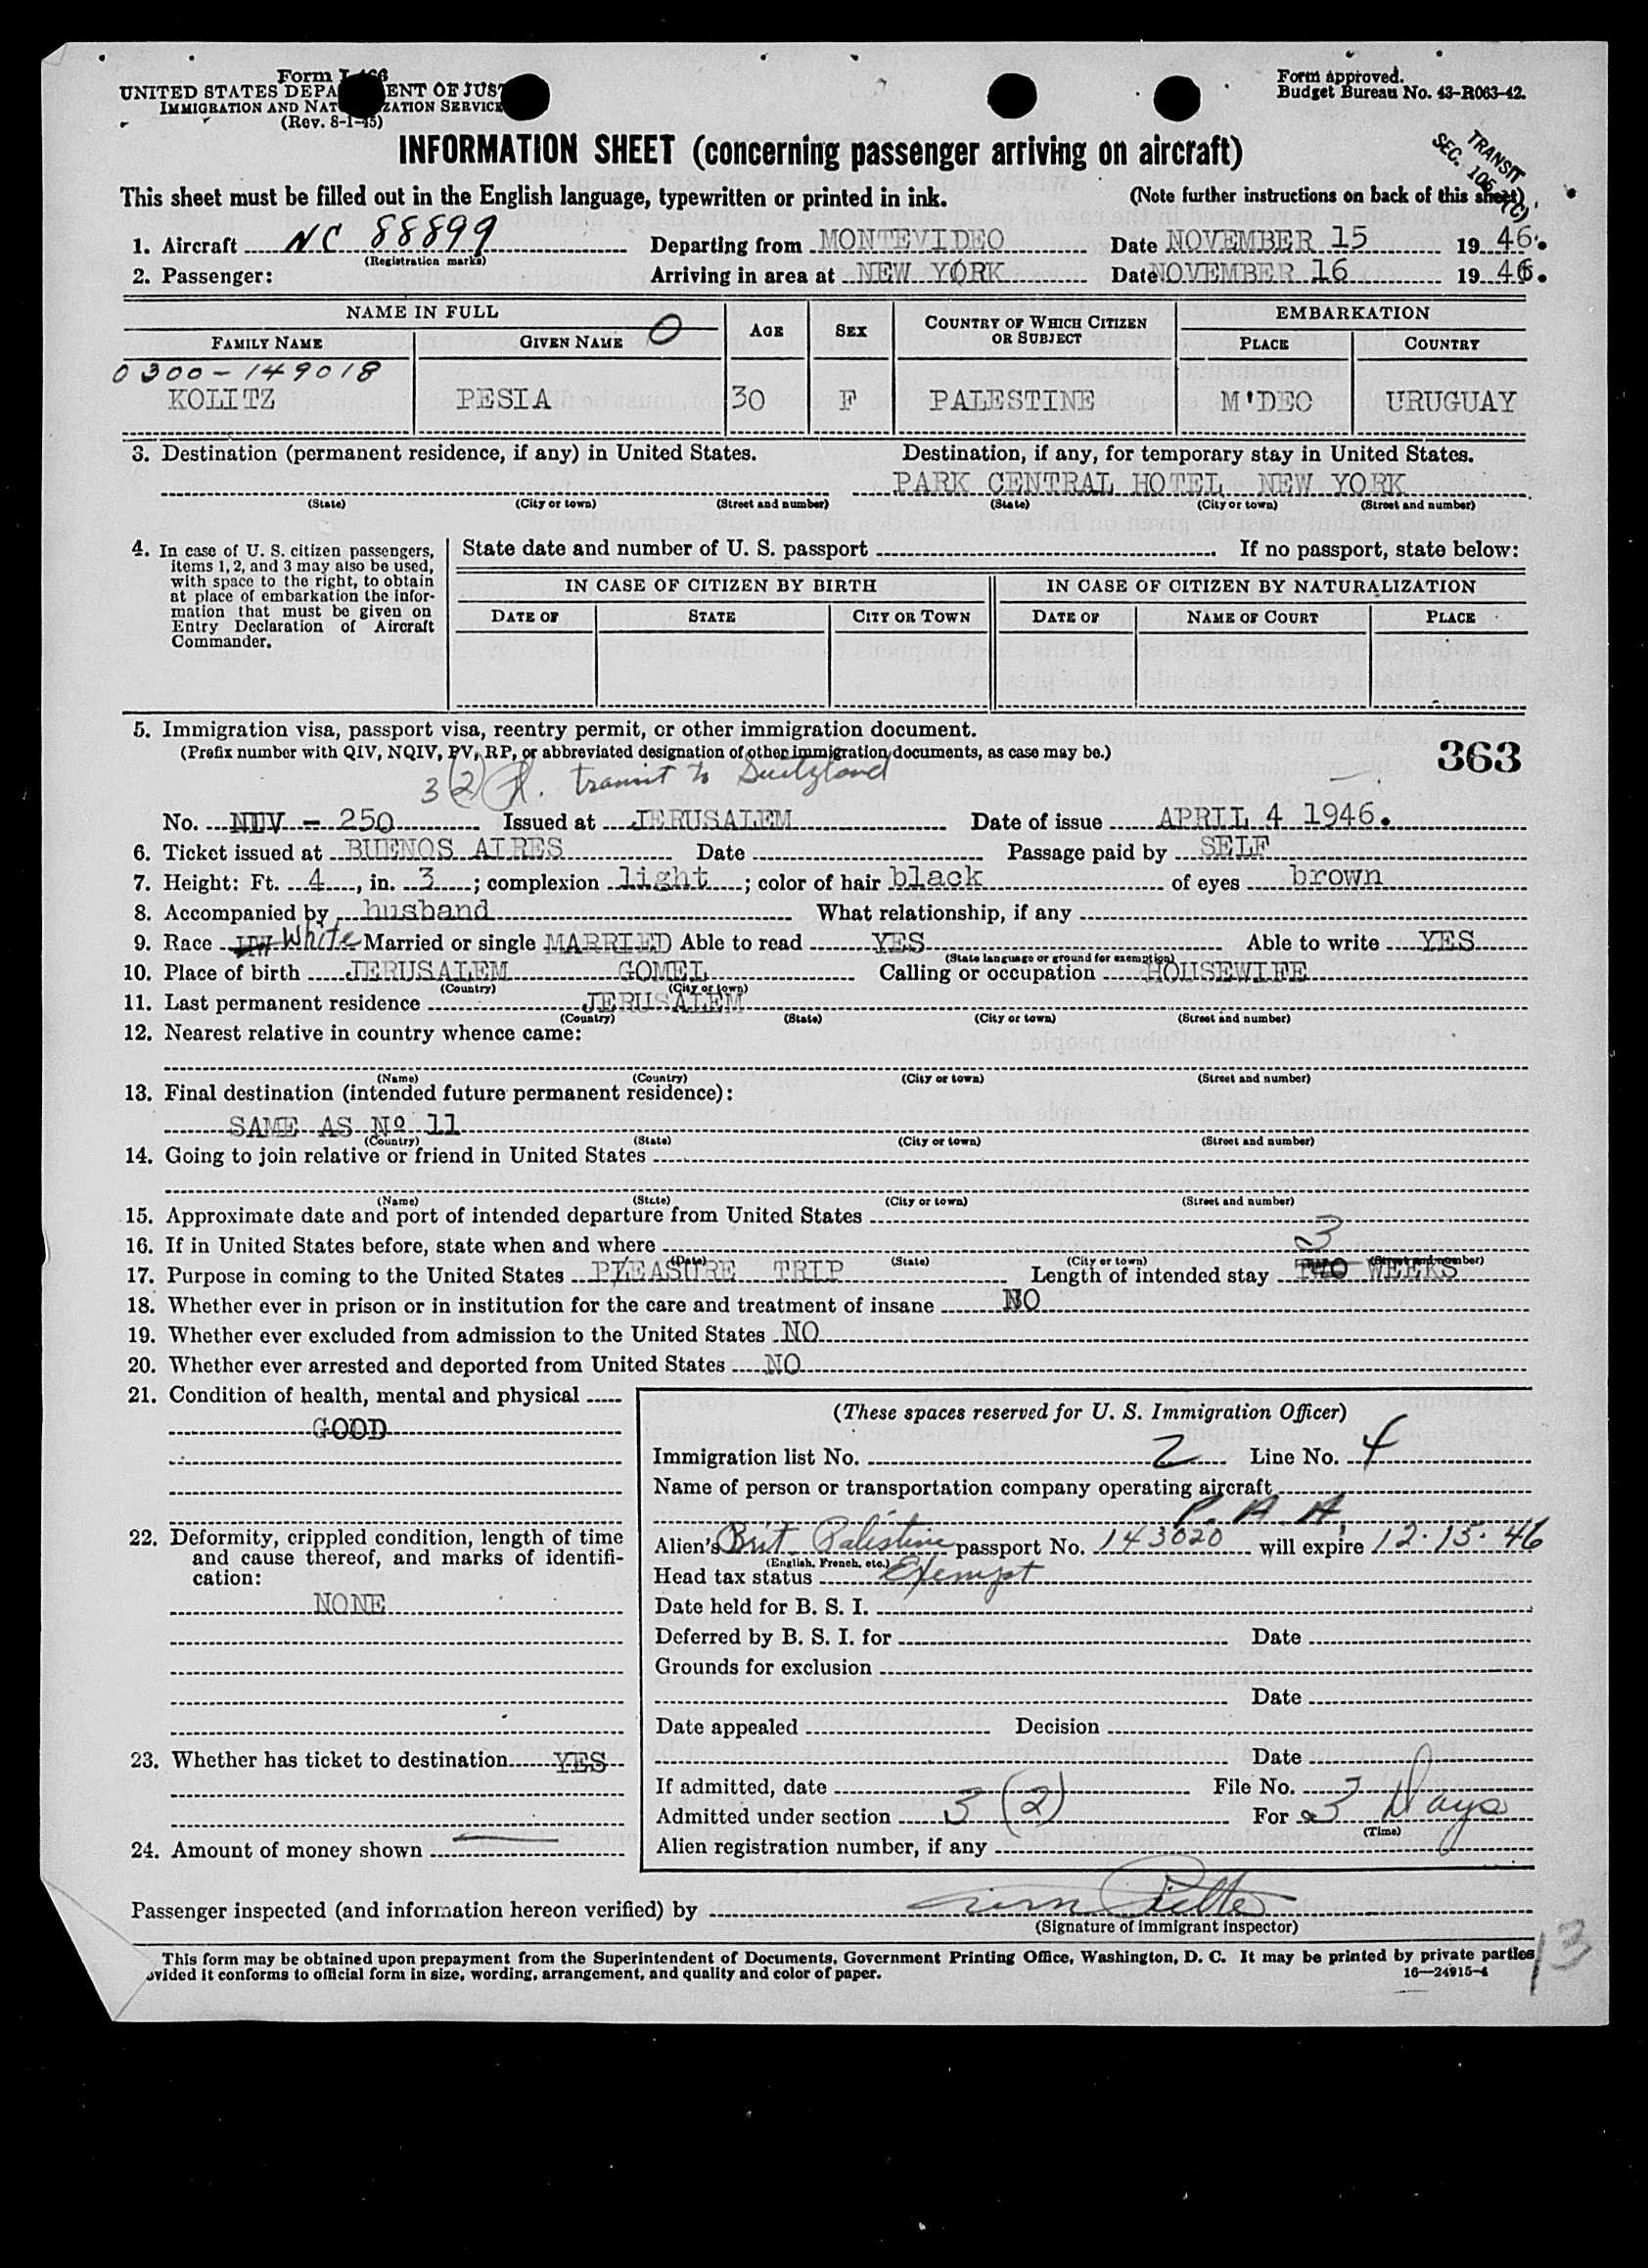 Form I-466
UNITED STATES DEPA ENT OF JUS
IMMIGRATION AND NAT ZATION SERVICE
(Rev. 8-1-45)
Form approved.
Budget Bureau No. 43-R063-42.
INFORMATION SHEET (concerning passenger arriving on aircraft)
TRANSIT
SEC.
This sheet must be filled out in the English language, typewritten or printed in ink. (Note further instructions on back of this sheet)
1. Aircraft NC 88899 Departing from MONTEVIDEO Date NOVEMBER 15 19 46.
(Registration marks)
2. Passenger: Arriving in area at NEW YORK Date NOVEMBER 16 19 46.
NAME IN FULL O AGE SEX COUNTRY OF WHICH CITIZEN OR SUBJECT EMBARKATION
FAMILY NAME GIVEN NAME PLACE COUNTRY
0300-149018
KOLITZ PESIA 30 F PALESTINE M'DEO URUGUAY
3. Destination (permanent residence, if any) in United States. Destination, if any, for temporary stay in United States.
PARK CENTRAL HOTEL NEW YORK
(State) (City or town) (Street and number) (State) (City or town) (Street and number)
4. In case of U. S. citizen passengers, items 1, 2, and 3 may also be used, with space to the right, to obtain at place of embarkation the information that must be given on Entry Declaration of Aircraft Commander.
State date and number of U. S. passport . If no passport, state below:
IN CASE OF CITIZEN BY BIRTH IN CASE OF CITIZEN BY NATURALIZATION
DATE OF STATE CITY OR TOWN DATE OF NAME OF COURT PLACE
5. Immigration visa, passport visa, reentry permit, or other immigration document.
(Prefix number with QIV, NQIV, PV, RP, or abbreviated designation of other immigration documents, as case may be.)
363
3(2) transit to Switzland
No. NIV - 250 Issued at JERUSALEM Date of issue APRIL 4 1946.
6. Ticket issued at BUENOS AIRES Date Passage paid by SELF
7. Height: Ft. 4, in. 3; complexion light; color of hair black of eyes brown
8. Accompanied by husband What relationship, if any
9. Race White Married or single MARRIED Able to read YES Able to write YES
(State language or ground for exemption)
10. Place of birth JERUSALEM GOMEL Calling or occupation HOUSEWIFE
(Country) (City or town)
11. Last permanent residence JERUSALEM
(Country) (State) (City or town) (Street and number)
12. Nearest relative in country whence came:
(Name) (Country) (City or town) (Street and number)
13. Final destination (intended future permanent residence):
SAME AS Nº 11
(Country) (State) (City or town) (Street and number)
14. Going to join relative or friend in United States
(Name) (State) (City or town) (Street and number)
15. Approximate date and port of intended departure from United States
16. If in United States before, state when and where
(Date) (State) (City or town) (Street and number)
3
17. Purpose in coming to the United States PLEASURE TRIP Length of intended stay TWO WEEKS
18. Whether ever in prison or in institution for the care and treatment of insane NO
19. Whether ever excluded from admission to the United States NO
20. Whether ever arrested and deported from United States NO
21. Condition of health, mental and physical
GOOD
22. Deformity, crippled condition, length of time and cause thereof, and marks of identification:
NONE
23. Whether has ticket to destination YES
24. Amount of money shown
(These spaces reserved for U. S. Immigration Officer)
Immigration list No. 2 Line No. 4
Name of person or transportation company operating aircraft
P. A. A.
Alien's Brit. Palestine passport No. 143020 will expire 12-15-46
(English, French, etc.)
Head tax status Exempt
Date held for B. S. I.
Deferred by B. S. I. for Date
Grounds for exclusion
Date
Date appealed Decision
Date
If admitted, date File No.
Admitted under section 3 (2) For 3 Days
(Time)
Alien registration number, if any
Passenger inspected (and information hereon verified) by
(Signature of immigrant inspector)
This form may be obtained upon prepayment from the Superintendent of Documents, Government Printing Office, Washington, D. C. It may be printed by private parties
ovided it conforms to official form in size, wording, arrangement, and quality and color of paper.
16—24915-4
13